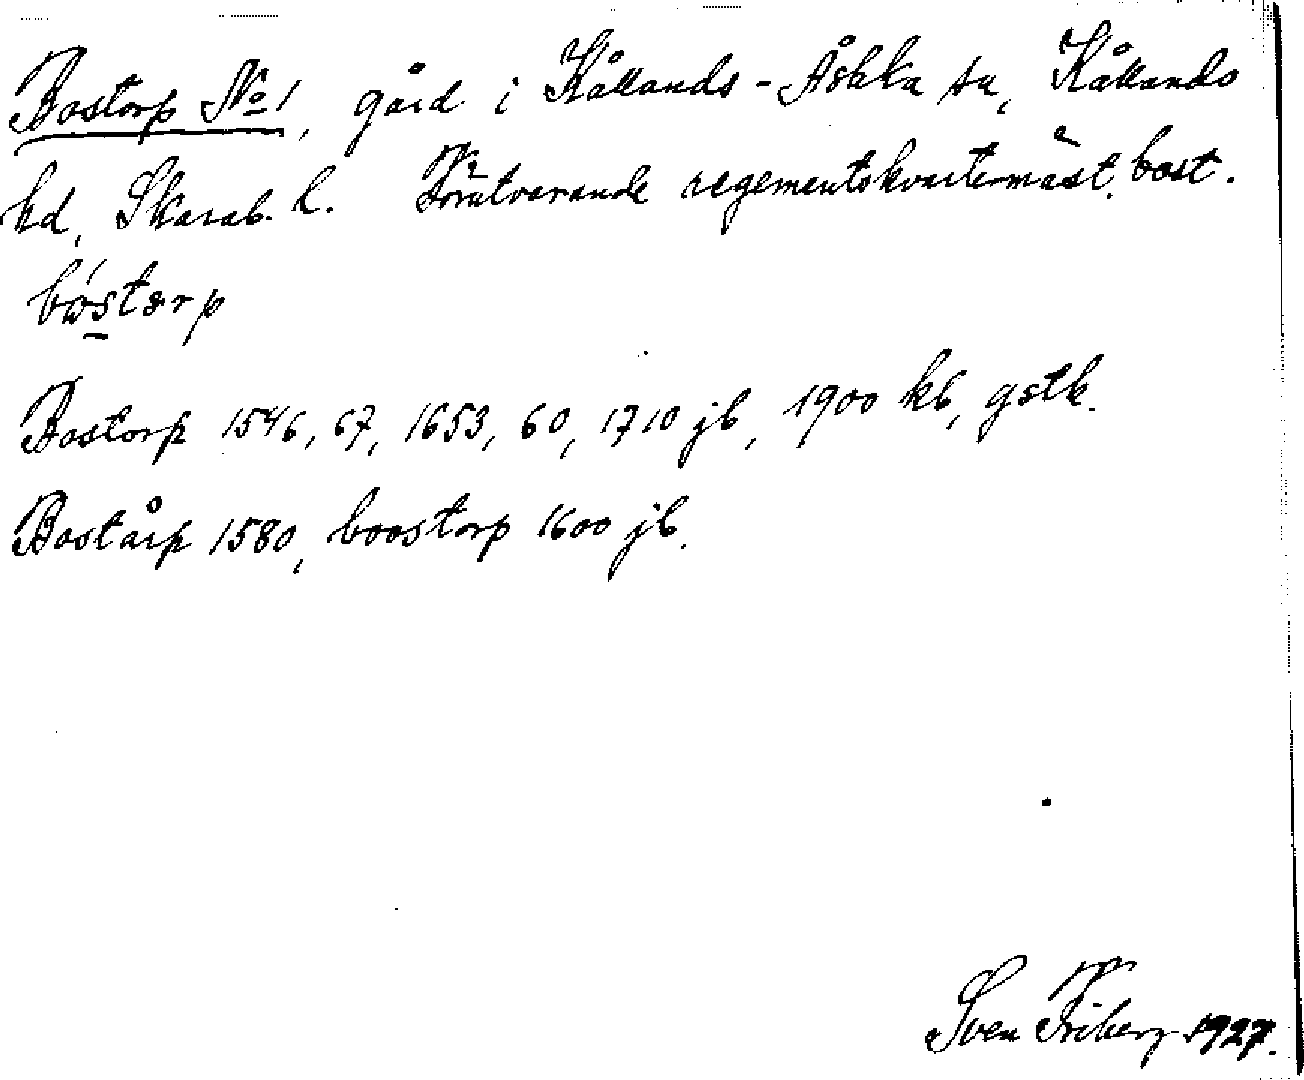 Bostorp No 1, gård i Kållands-Åshka sn, Kållands
hd, Skarab. l. Förutvarande regementskvartermäst. bost.
bǿstærp
Bostorp 1546, 67, 1653, 60, 1710 jb, 1900 kb, gstk.
Bostårp 1580, boostorp 1600 jb.
Sven Friberg 1927.